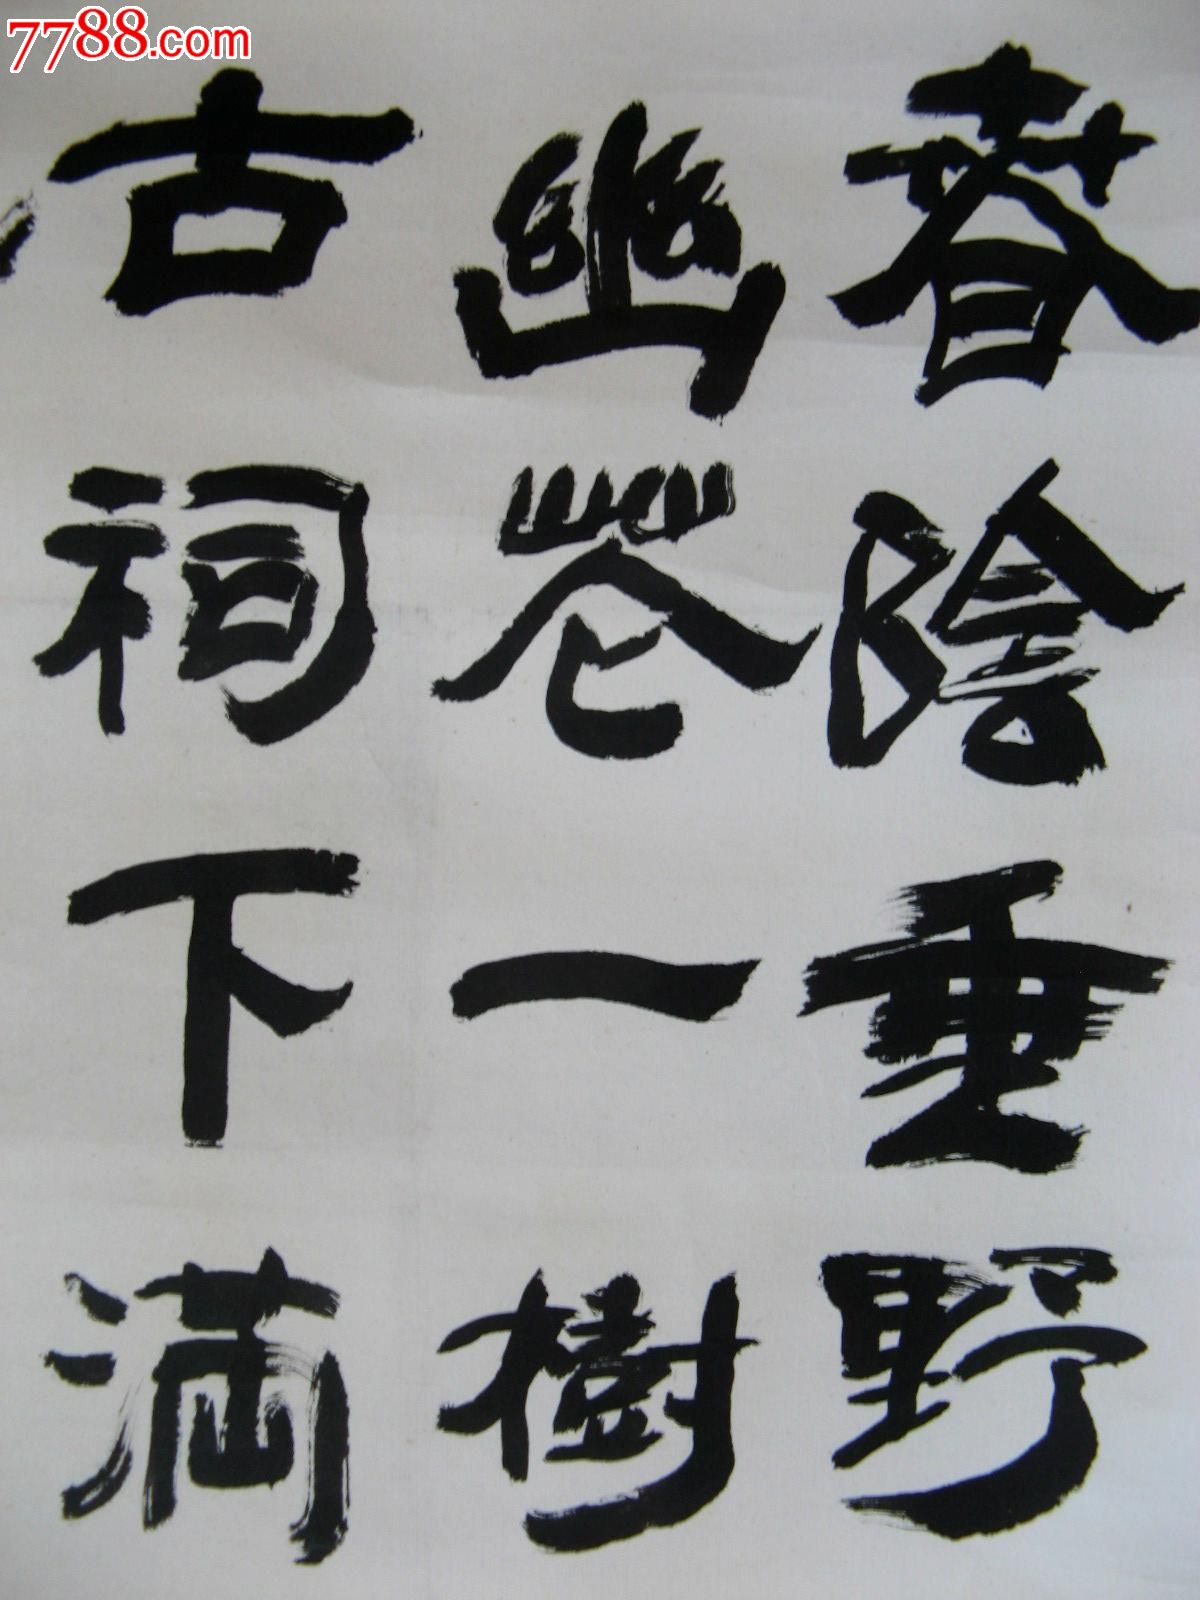 7788.com
春陰垂野
幽花一樹
古祠下满